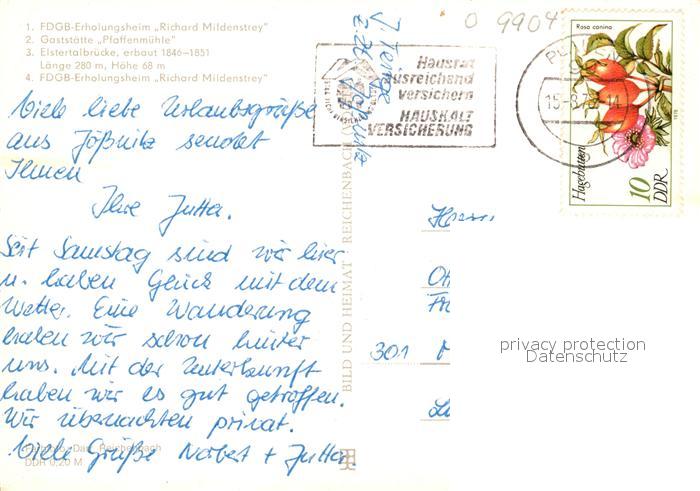 1. FDGB-Erholungsheim „Richard Mildenstrey"
2. Gaststätte „Pfaffenmühle"
3. Elstertalbrücke, erbaut 1846–1851
Länge 280 m, Höhe 68 m
4. FDGB-Erholungsheim „Richard Mildenstrey"
Viele liebe Urlaubsgrüße
aus Jößnitz sendet
Ihnen
Ihre Jutta.
Seit Samstag sind wir hier
u. haben Glück mit dem
Wetter. Eine Wanderung
haben wir schon hinter
uns. Mit der Unterkunft
haben wir es gut getroffen.
Wir übernachten privat.
Viele Grüße Norbert + Jutta.
Reichenbach
DDR 0,20 M
BILD UND HEIMAT REICHENBACH (V
0 9904
Hausrat
ausreichend
versichern
HAUSHALT
VERSICHERUNG
15-8
14
Rosa canina
Hagebutten
10
DDR
1978
Herrn
301
privacy protection
Datenschutz